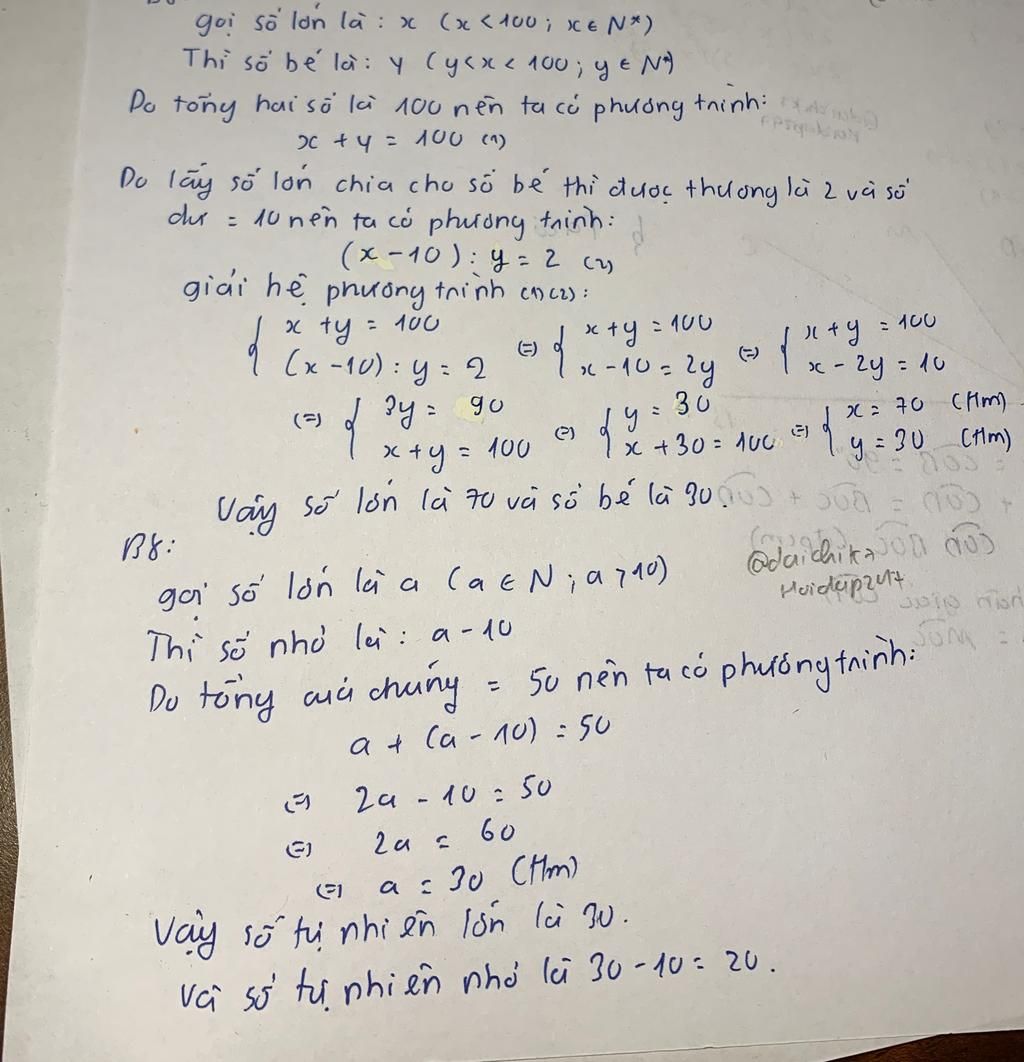 gọi số lớn là : x (x < 100 ; x ∈ N*)
Thì số bé là : y (y < x < 100 ; y ∈ N*)
Do tổng hai số là 100 nên ta có phương trình:
x + y = 100 (1)
Do lấy số lớn chia cho số bé thì được thương là 2 và số
dư = 10 nên ta có phương trình:
(x - 10) : y = 2 (2)
giải hệ phương trình (1)(2) :
{ x + y = 100 (=) { x + y = 100 (=) { x + y = 100
(x - 10) : y = 2 x - 10 = 2y x - 2y = 10
(=) { 3y = 90 (=) { y = 30 (=) { x = 70 (tm)
x + y = 100 x + 30 = 100 y = 30 (tm)
Vậy số lớn là 70 và số bé là 30.
B8:
gọi số lớn là a (a ∈ N ; a > 10)
@daichik
Hoidap247
Thì số nhỏ là : a - 10
Do tổng của chúng = 50 nên ta có phương trình:
a + (a - 10) = 50
(=) 2a - 10 = 50
(=) 2a = 60
(=) a = 30 (tm)
Vậy số tự nhiên lớn là 30.
Và số tự nhiên nhỏ là 30 - 10 = 20.